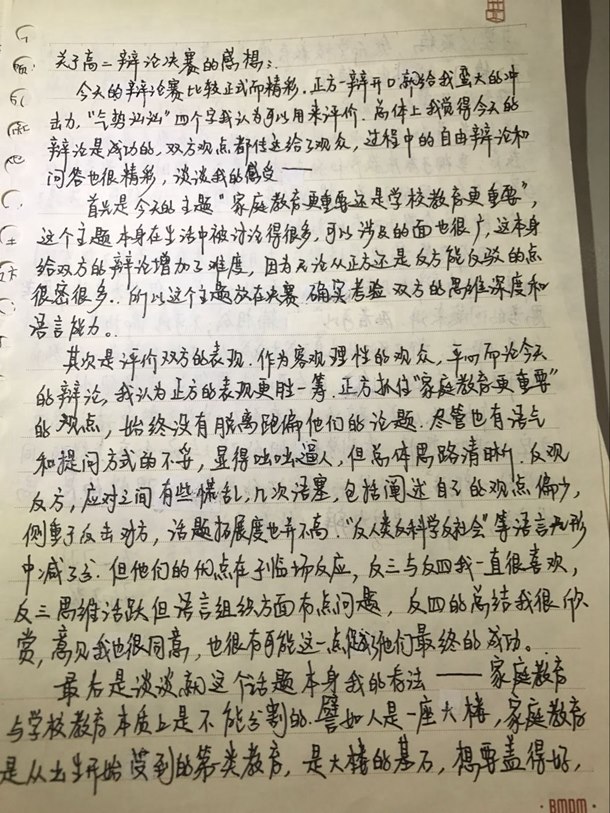 关于高二辩论决赛的感想:
今天的辩论赛比较正式而精彩.正方一辩开口就给我蛮大的冲
击力,"气势汹汹"四个字我认为可以用来评价.总体上我觉得今天的
辩论是成功的,双方观点都传达给了观众,过程中的自由辩论和
问答也很精彩,谈谈我的感受——
首先是今天的主题"家庭教育更重要还是学校教育更重要",
这个主题本身在生活中被讨论得很多,可以涉及的面也很广,这本身
给双方的辩论增加了难度,因为无论从正方还是反方能反驳的点
很密很多.所以这个主题放在决赛确实考验双方的思维深度和
语言能力。
其次是评价双方的表现.作为客观理性的观众,平心而论今天
的辩论,我认为正方的表现更胜一筹.正方抓住"家庭教育更重要"
的观点,始终没有脱离跑偏他们的论题.尽管也有语气
和提问方式的不妥,显得咄咄逼人,但总体思路清晰.反观
反方,应对之间有些慌乱,几次语塞,包括阐述自己的观点偏少,
侧重于反击对方,话题拓展度也并不高."反人类反科学反社会"等语言无形
中减了分.但他们的优点在于临场反应,反三与反四我一直很喜欢,
反三思维活跃但语言组织方面有点问题,反四的总结我很欣
赏,高见我也很同意,也很有可能这一点促成他们最终的成功。
最后是谈谈就这个话题本身我的看法——家庭教育
与学校教育本质上是不能分割的.譬如人是一座大楼,家庭教育
是从出生开始受到的第一类教育,是大楼的基石,想要盖得好,
BMDM